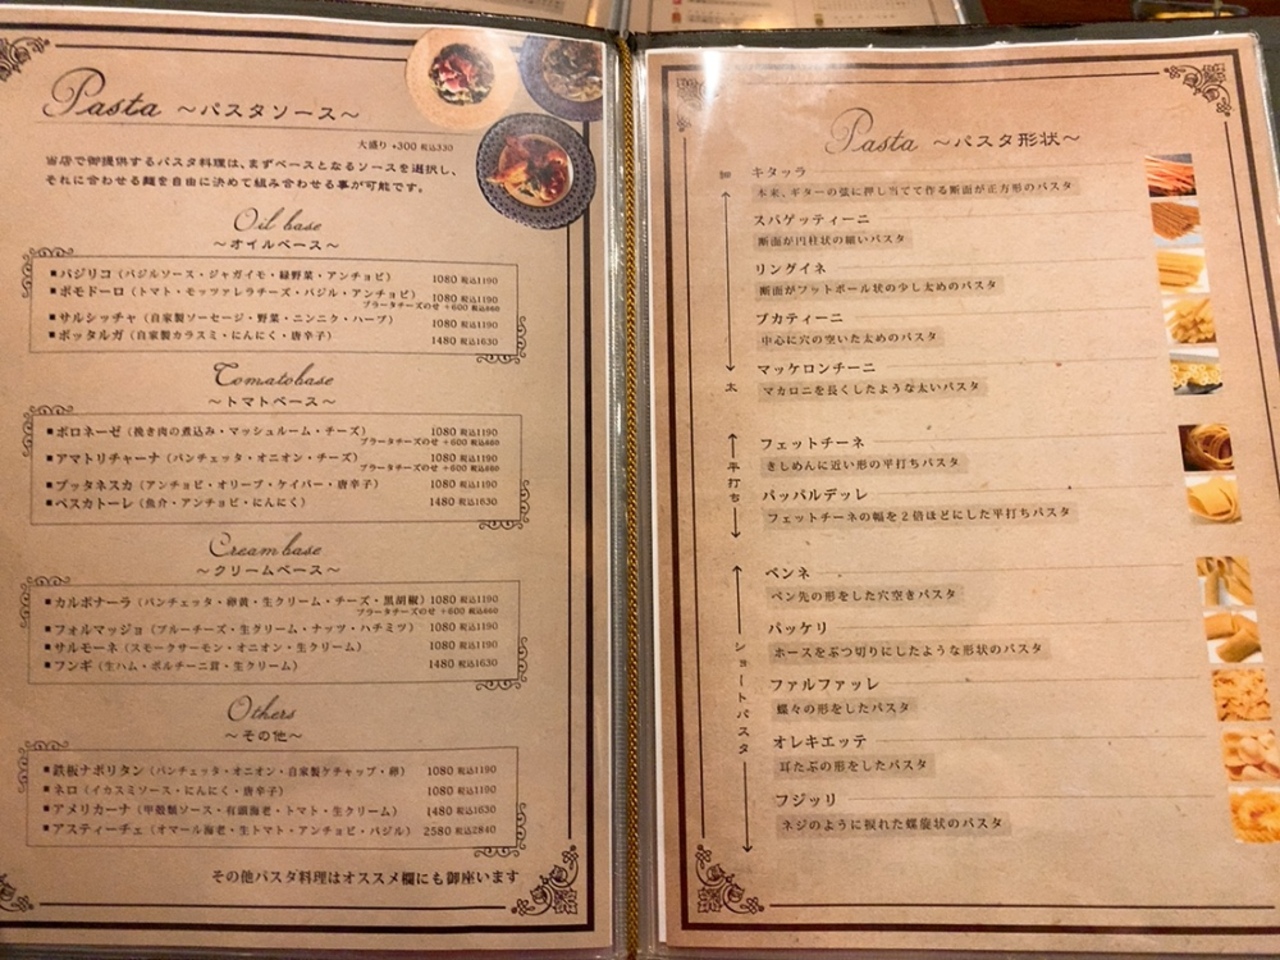 Pasta ～パスタソース～
大盛り +300 税込330
当店で御提供するパスタ料理は、まずベースとなるソースを選択し、
それに合わせる麺を自由に決めて組み合わせる事が可能です。
Oil base
～オイルベース～
■バジリコ（バジルソース・ジャガイモ・緑野菜・アンチョビ） 1080 税込1190
■ポモドーロ（トマト・モッツァレラチーズ・バジル・アンチョビ） 1080 税込1190
ブラータチーズのせ +600 税込660
■サルシッチャ（自家製ソーセージ・野菜・ニンニク・ハーブ） 1080 税込1190
■ボッタルガ（自家製カラスミ・にんにく・唐辛子） 1480 税込1630
Tomatobase
～トマトベース～
■ボロネーゼ（挽き肉の煮込み・マッシュルーム・チーズ） 1080 税込1190
ブラータチーズのせ +600 税込660
■アマトリチャーナ（パンチェッタ・オニオン・チーズ） 1080 税込1190
ブラータチーズのせ +600 税込660
■プッタネスカ（アンチョビ・オリーブ・ケイパー・唐辛子） 1080 税込1190
■ペスカトーレ（魚介・アンチョビ・にんにく） 1480 税込1630
Cream base
～クリームベース～
■カルボナーラ（パンチェッタ・卵黄・生クリーム・チーズ・黒胡椒） 1080 税込1190
ブラータチーズのせ +600 税込660
■フォルマッジョ（ブルーチーズ・生クリーム・ナッツ・ハチミツ） 1080 税込1190
■サルモーネ（スモークサーモン・オニオン・生クリーム） 1080 税込1190
■フンギ（生ハム・ポルチーニ茸・生クリーム） 1480 税込1630
Others
～その他～
■鉄板ナポリタン（パンチェッタ・オニオン・自家製ケチャップ・卵） 1080 税込1190
■ネロ（イカスミソース・にんにく・唐辛子） 1080 税込1190
■アメリカーナ（甲殻類ソース・有頭海老・トマト・生クリーム） 1480 税込1630
■アスティーチェ（オマール海老・生トマト・アンチョビ・バジル） 2580 税込2840
その他パスタ料理はオススメ欄にも御座います
Pasta ～パスタ形状～
細
キタッラ
本来、ギターの弦に押し当てて作る断面が正方形のパスタ
スパゲッティーニ
断面が円柱状の細いパスタ
リングイネ
断面がフットボール状の少し太めのパスタ
ブカティーニ
中心に穴の空いた太めのパスタ
マッケロンチーニ
マカロニを長くしたような太いパスタ
太
平打ち
フェットチーネ
きしめんに近い形の平打ちパスタ
パッパルデッレ
フェットチーネの幅を2倍ほどにした平打ちパスタ
ショートパスタ
ペンネ
ペン先の形をした穴空きパスタ
パッケリ
ホースをぶつ切りにしたような形状のパスタ
ファルファッレ
蝶々の形をしたパスタ
オレキエッテ
耳たぶの形をしたパスタ
フジッリ
ネジのように捩れた螺旋状のパスタ